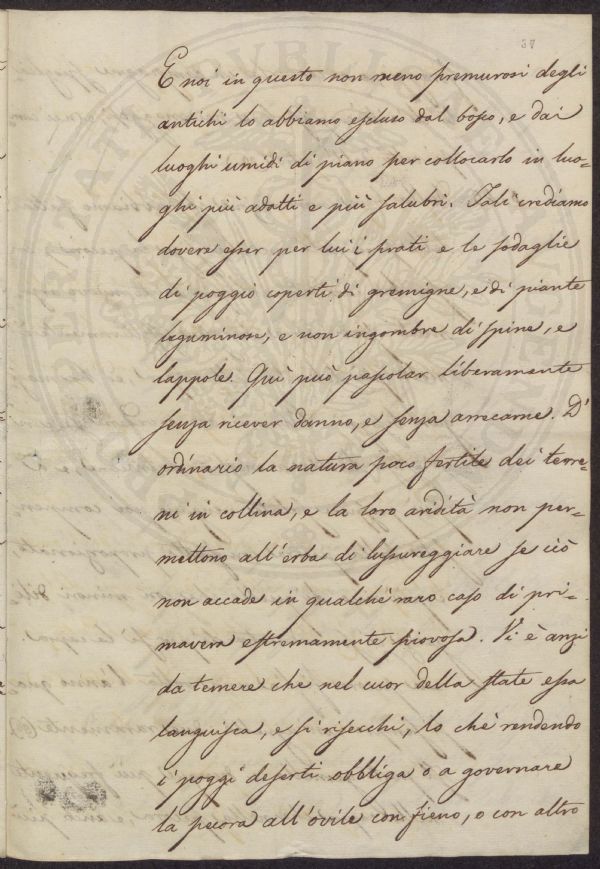 37
E noi in questo non meno premurosi degli
antichi lo abbiamo escluso dal bosco, e dai
luoghi umidi di piano per collocarlo in luo-
ghi più adatti e più salubri. Tali crediamo
dovere esser per lui i prati e le sodaglie
di poggio coperti di gremigne, e di piante
leguminose, e non ingombre di spine, e
lappole. Quì può pascolar liberamente
senza ricever danno, e senza arrecarne. D'
ordinario la natura poco fertile dei terre-
ni in collina, e la loro aridità non per-
mettono all'erba di lussureggiare se ciò
non accade in qualche raro caso di pri-
mavera estremamente piovosa. Vi è anzi
da temere che nel cuor della state essa
languisca, e si risecchi, lo chè rendendo
i poggi deserti obbliga o a governare
la pecora all'ovile con fieno, o con altro